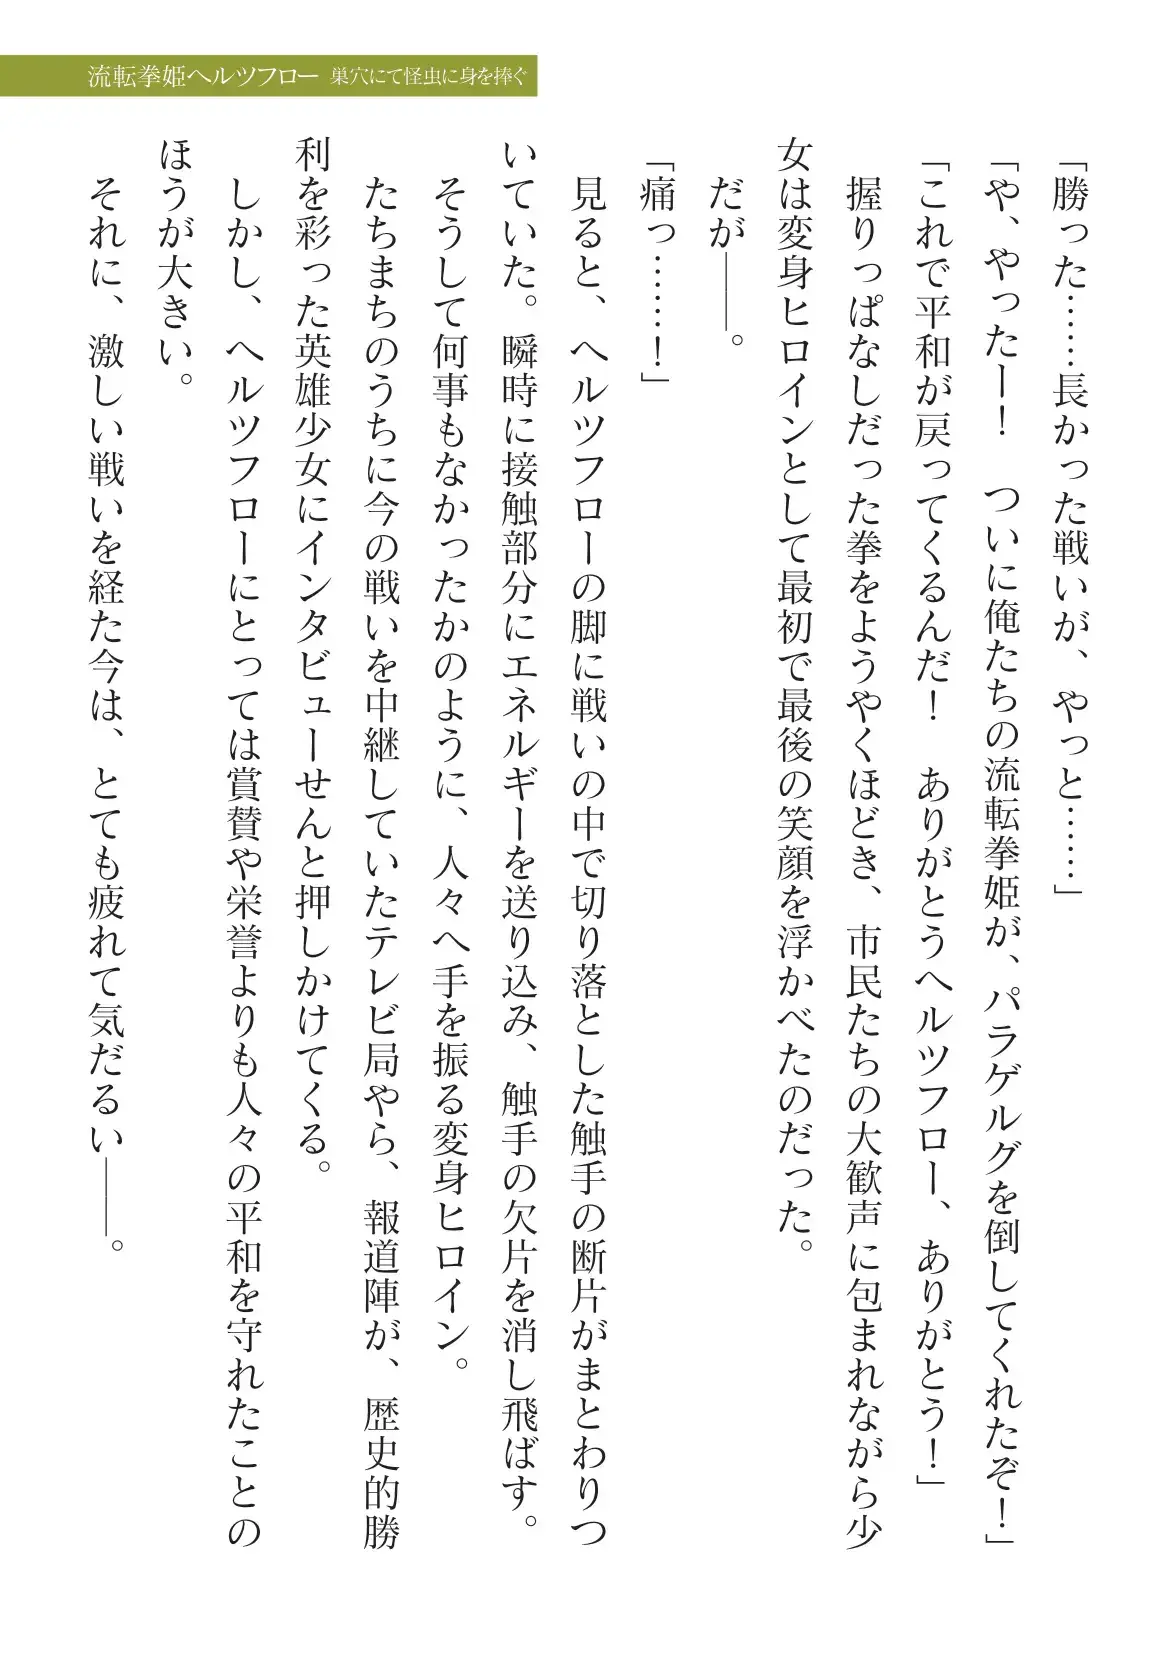 流転拳姫ヘルツフロー 巣穴にて怪虫に身を捧ぐ
「勝った……長かった戦いが、やっと……」
「や、やったー！　ついに俺たちの流転拳姫が、パラゲルグを倒してくれたぞ！」
「これで平和が戻ってくるんだ！　ありがとうヘルツフロー、ありがとう！」
　握りっぱなしだった拳をようやくほどき、市民たちの大歓声に包まれながら少
女は変身ヒロインとして最初で最後の笑顔を浮かべたのだった。
　だが――。
「痛っ………！」
　見ると、ヘルツフローの脚に戦いの中で切り落とした触手の断片がまとわりつ
いていた。瞬時に接触部分にエネルギーを送り込み、触手の欠片を消し飛ばす。
　そうして何事もなかったかのように、人々へ手を振る変身ヒロイン。
　たちまちのうちに今の戦いを中継していたテレビ局やら、報道陣が、歴史的勝
利を彩った英雄少女にインタビューせんと押しかけてくる。
　しかし、ヘルツフローにとっては賞賛や栄誉よりも人々の平和を守れたことの
ほうが大きい。
　それに、激しい戦いを経た今は、とても疲れて気だるい――。